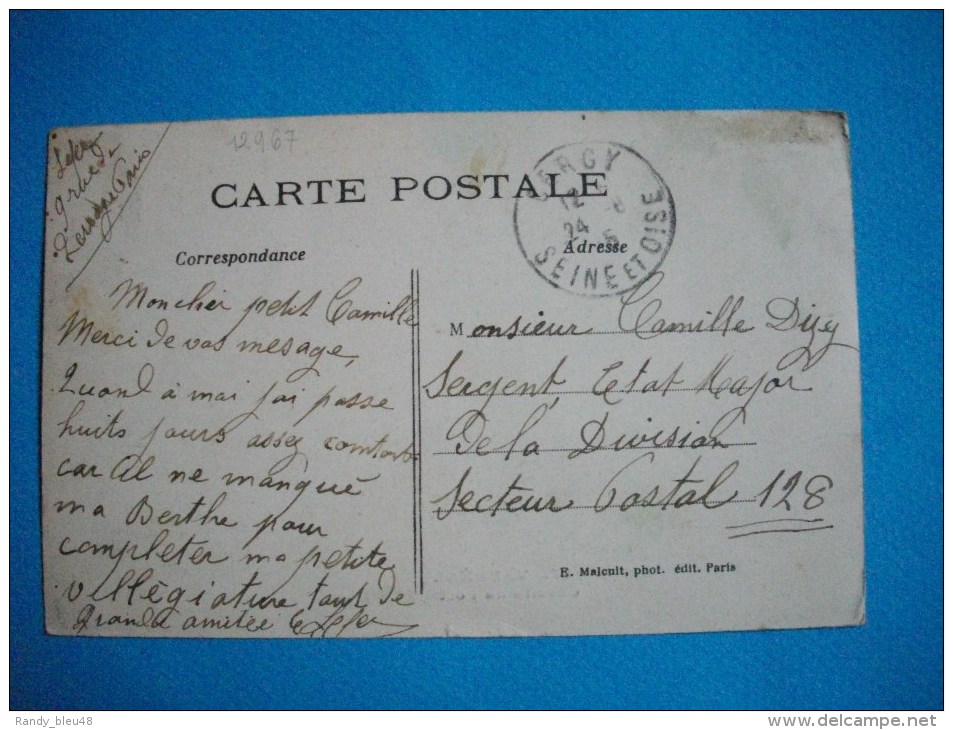 12967
9 rue de
Paris
CARTE POSTALE
CERGY
12
24
SEINE ET OISE
Correspondance
Adresse
Mon cher petit Camille
Merci de vos mesage,
Quand à mai j'ai passe
huits jours assez
car Al ne manqué
ma Berthe pour
completer ma petite
villégiature tant de
Grande amitée
Monsieur Camille
Sergent, Etat Major
De la Division
Secteur Postal 128
E. Malcuit, phot. édit. Paris
Randy_bleu48
http://www.delcampe.net